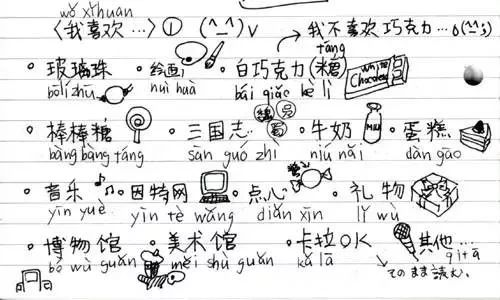 wǒ xǐhuan
〈我喜欢…〉① (^_^)v → 我不喜欢 巧克力…
táng
・玻璃珠 ・绘画 ・白巧克力(糖) White Chocolate
bōlizhū huì huà bái qiǎo kè lì
・棒棒糖 ・三国志 魏 吴 蜀 ・牛奶 MILK ・蛋糕
bàng bàng táng sān guó zhì niú nǎi dàn gāo
・音乐 ・因特网 ・点心 ・礼物
yīn yuè yīn tè wǎng diǎn xīn lǐ wù
・博物馆 ・美术馆 ・卡拉OK 其他…
bó wù guǎn měi shù guǎn kǎ lā qí tā